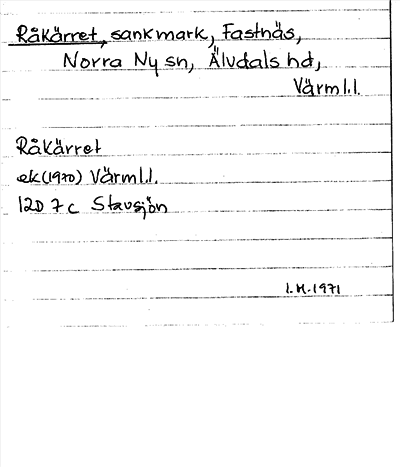 Råkärret, sankmark, Fastnäs,
Norra Ny sn, Älvdals hd,
Värml.l.
Råkärret
ek(1970) Värml.l.
12D 7c Stavsjön
I.H.1971